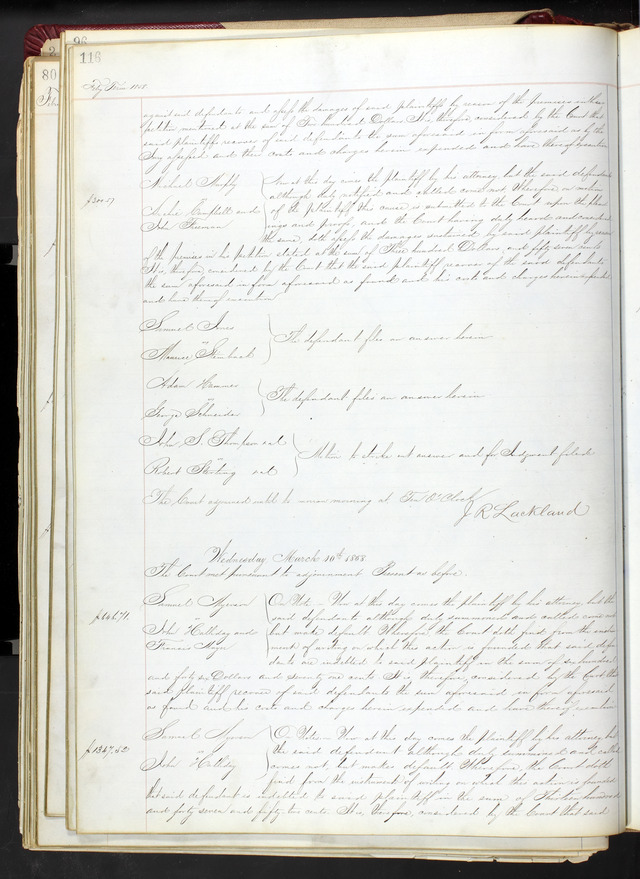 96
116
80
2
Feby Term 1868
against said defendants and assess the damages of said plaintiffs by reason of the premises in their
petition mentioned at the sum of hundred Dollars It is therefore considered by the Court that
said plaintiffs recover of said defendants the sum aforesaid in form aforesaid as by the
Jury assessed and their costs and charges herein expended and have thereof execution
Michael Murphy
Campbell and
John Freeman
Now at this day comes the plaintiff by his attorney but the said defendants
although duly notified and called come not Therefore on motion
of the plaintiff this cause is submitted to the Court upon the plead
ings and proof and the Court having duly heard and considered
the same, doth assess the damages sustained by said plaintiff by reason
of the premises in his petition stated at the sum of Three hundred Dollars and fifty seven cents
It is, therefore, considered by the Court that the said plaintiff recover of the said defendants
the sum aforesaid in form aforesaid as found and his costs and charges herein expended
and have thereof execution
Samuel
vs
Maurice Steinback
The defendant files an answer herein
Adam Hammer
vs
George Schneider
The defendant files an answer herein
John S. Thompson et al
vs
Robert Sterling et al
Motion to strike out answer and for Judgment filed
The Court adjourned until to morrow morning at Ten O'Clock
J R Lackland
Wednesday March 11th 1868
The Court met pursuant to adjournment Present as before.
$646.71.
Samuel
vs
John Halliday and
Francis
On Note. Now at this day comes the plaintiff by his attorney, but the
said defendants although duly summoned and called come not
but make default Wherefore the Court doth find from the instru
ment of writing on which this action is founded that said defen
dants are indebted to said plaintiff in the sum of six hundred
and forty six Dollars and seventy one cents It is, therefore, considered by the Court that
said plaintiff recover of said defendants the sum aforesaid in form aforesaid
as found and his costs and charges herein expended and have thereof execution
$1347.52
Samuel
vs
John Halliday
On Note. Now at this day comes the plaintiff by his attorney, but
the said defendant although duly summoned and called
comes not, but makes default Wherefore, the Court doth
find from the instrument of writing on which this action is founded
that said defendant is indebted to said plaintiff in the sum of Thirteen hundred
and forty seven and fifty two cents It is, therefore, considered by the Court that said